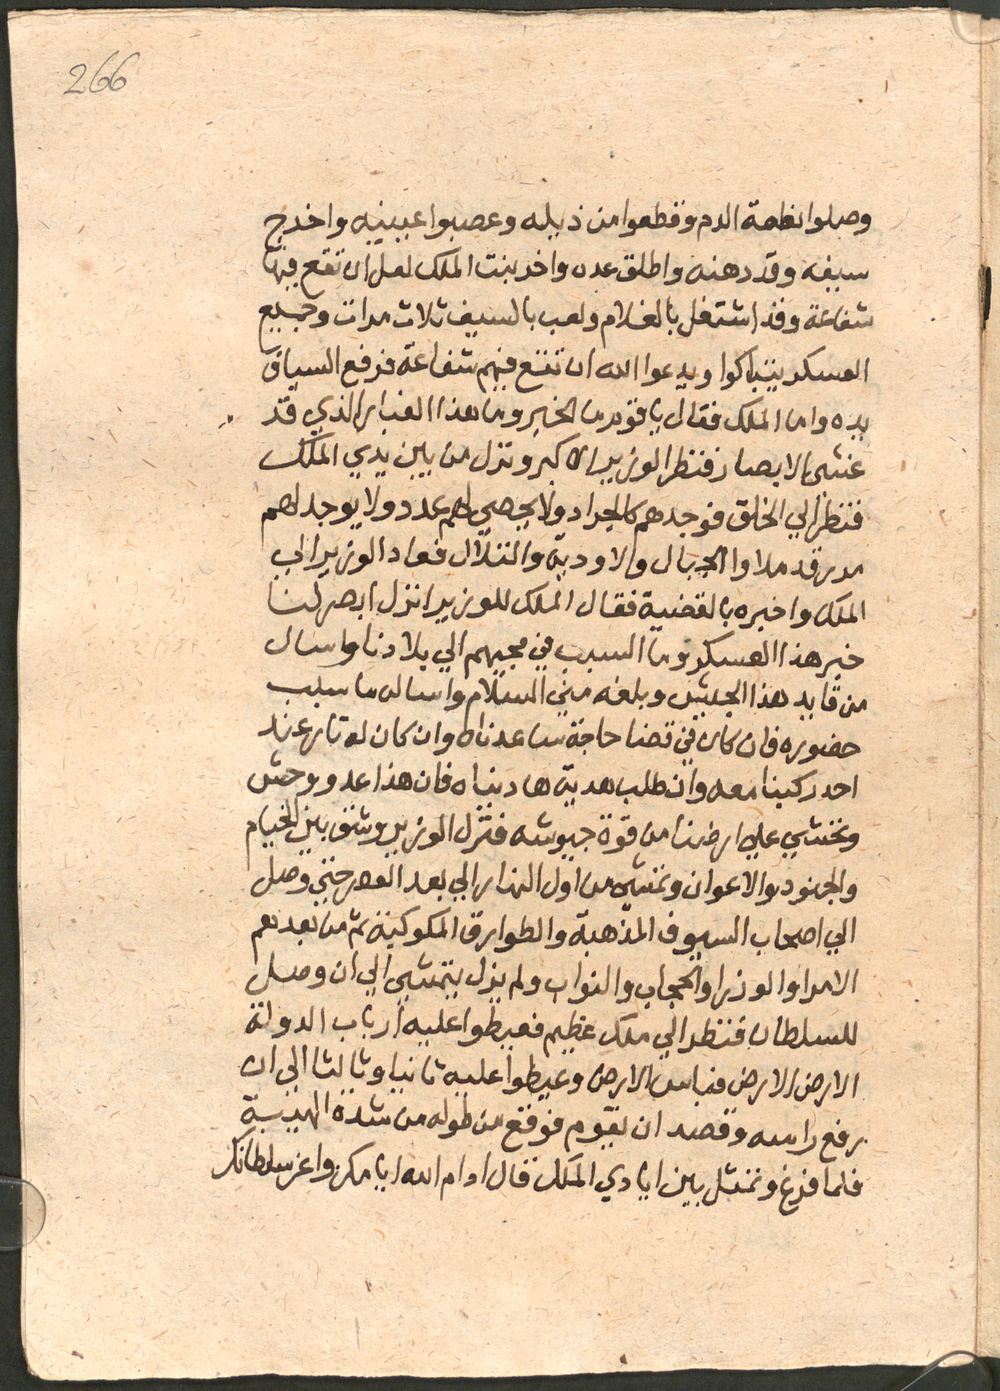 266
وصلوا نطعة الدم وقطعوا من ذيله وعصبوا عينيه واخرج
سيفه وقد دهنه واطلق عدن واخر بنت الملك لعل ان تقع فيها
شفاعة وقد اشتغل بالغلام ولعب بالسيف ثلاث مرات وجميع
العسكر يتباكوا ويدعوا الله ان تقع فيهم شفاعة فرفع السياف
يده واما الملك فقال يا قوم ما الخبر وما هذا الغبار الذي قد
غشى الابصار فنظر الوزير الاكبر ونزل من بين يدي الملك
فنظر الي الخلق فوجدهم كالجراد ولا يحصي لهم عدد ولا يوجد لهم
مدد قد ملاوا الجبال والاودية والتلال فعاد الوزير الي
الملك واخبره بالقضية فقال الملك للوزير انزل ابصر لنا
خبر هذا العسكر وما السبب في مجيهم الي بلادنا واسال
من قايد هذا الجيش وبلغه مني السلام واساله ما سبب
حضوره فان كان في قضا حاجة ساعدناه وان كان له تار عند
احد ركبنا معه وان طلب هدية هاديناه فان هذا عدو وحش
ونخشي علي ارضنا من قوة جيوشه فنزل الوزير وشق بين الخيام
والجنود والاعوان وتمشي من اول النهار الي بعد العصر حتي وصل
الي اصحاب السيوف المذهبة والطوارق المكوكبة ثم من بعدهم
الامرا والوزرا والحجاب والنواب ولم يزل يتمشي الي ان وصل
للسلطان فنظر الي ملك عظيم فعيطوا عليه ارباب الدولة
الارض الارض فباس الارض وعيطوا عليه ثانيا وثالثا الي ان
رفع راسه وقصد ان يقوم فوقع من طوله من شدة الهيبة
فلما فرغ وتمثل بين ايادي الملك قال ادام الله ايامكم واعز سلطانكم